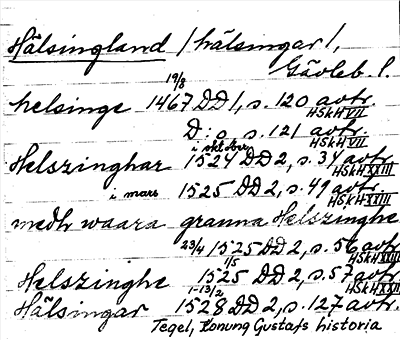 Hälsingland /hälsingar/,
Gävleb. l.
helsinge 19/8 1467 DD 1, s. 120 avtr. HSkH VII
D:o s. 121 avtr. HSkH VII
Helszinghar i oktober 1524 DD 2, s. 34 avtr. HSkH XXIII
i mars 1525 DD 2, s. 49 avtr. HSkH XXIII
medh waara granna Helszinghe
23/4 1525 DD 2, s. 56 avtr. HSkH XXIII
Helszinghe 1/5 1525 DD 2, s. 57 avtr. HSkH XXIII
Hälsingar 1-13/2 1528 DD 2, s. 127 avtr.
Tegel, Konung Gustafs historia